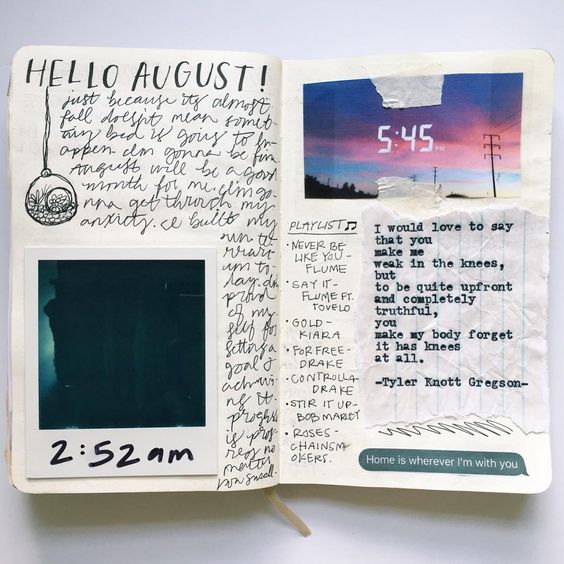 HELLO AUGUST!
just because its almost
fall doesnt mean somet
any bad is going to h
appen. Im gonna be fine
August will be a good
month for me. Im go
nna get through my
anxiety. I built my
own te
rrari
um to
day. Im
proud
of my
self for
setting a
goal &
achievi
ng it.
progress
is prog
ress no
matter
how small.
2:52am
5:45 PM
PLAYLIST♫
• NEVER BE
LIKE YOU -
FLUME
• SAY IT -
FLUME FT.
TOVELO
• GOLD -
KIARA
• FOR FREE -
DRAKE
• CONTROLLA
DRAKE
• STIR IT UP -
BOB MARLEY
• ROSES -
CHAINSM
OKERS.
I would love to say
that you
make me
weak in the knees,
but
to be quite upfront
and completely
truthful,
you
make my body forget
it has knees
at all.
-Tyler Knott Gregson-
Home is wherever I'm with you